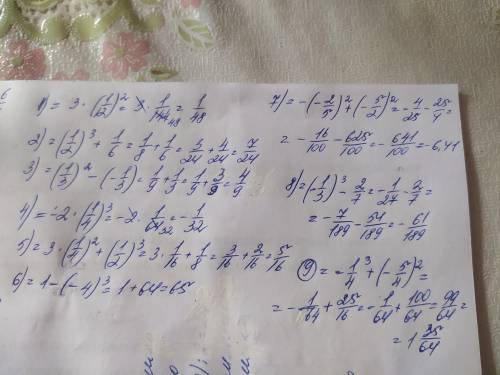 1) = 3 · (1/12)² = 3 · 1/144 48 = 1/48
2) = (1/2)³ + 1/6 = 1/8 + 1/6 = 3/24 + 4/24 = 7/24
3) = (1/3)² - (-1/3) = 1/9 + 1/3 = 1/9 + 3/9 = 4/9
4) = -2 · (1/4)³ = -2 · 1/64 32 = -1/32
5) = 3 · (1/4)² + (1/2)³ = 3 · 1/16 + 1/8 = 3/16 + 2/16 = 5/16
6) = 1 - (-4)³ = 1 + 64 = 65
7) = -(-2/5)² + (-5/2)² = -4/25 - 25/4 =
= -16/100 - 625/100 = -641/100 = -6,41
8) = (-1/3)³ - 2/7 = -1/27 - 2/7 =
= -7/189 - 54/189 = -61/189
9) = -1/4³ + (-5/4)² =
= -1/64 + 25/16 = -1/64 + 100/64 = 99/64 =
= 1 35/64